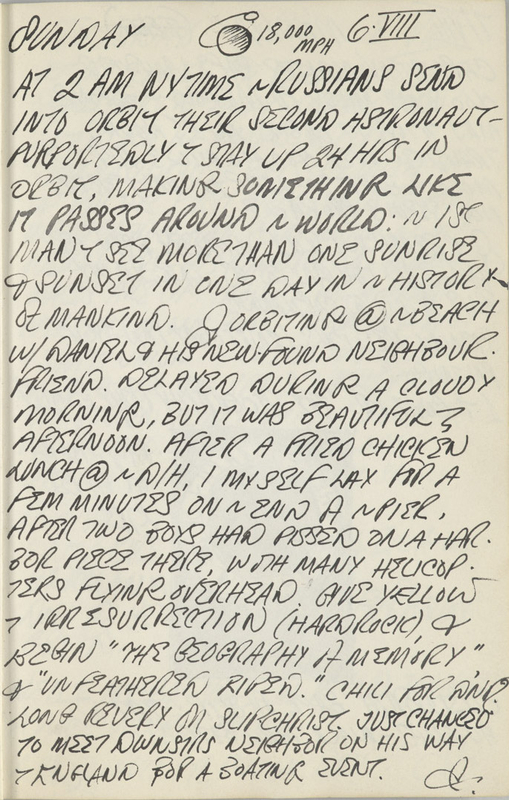 SUNDAY 18,000 MPH 6·VIII
AT 2 AM NYTIME ~ RUSSIANS SEND
INTO ORBIT THEIR SECOND ASTRONAUT–
PURPORTEDLY T STAY UP 24 HRS IN
ORBIT, MAKING SOMETHING LIKE
17 PASSES AROUND ~ WORLD: ~ 1ST
MAN T SEE MORE THAN ONE SUNRISE
& SUNSET IN ONE DAY IN ~ HISTORY
OF MANKIND. I ORBITING @ ~ BEACH
W/ DANIEL & HIS NEW FOUND NEIGHBOUR·
FRIEND. DELAYED DURING A CLOUDY
MORNING, BUT IT WAS BEAUTIFUL
AFTERNOON. AFTER A FRIED CHICKEN
LUNCH @ ~ D/H, I MYSELF LAY FOR A
FEW MINUTES ON ~ END OF ~ PIER,
AFTER TWO BOYS HAD POSED ON A HAR·
BOR PIECE THERE, WITH MANY HELICOP·
TERS FLYING OVERHEAD. GIVE YELLOW
T IRRESURRECTION (HARDROCK), &
BEGIN "THE GEOGRAPHY OF MEMORY"
& "UNFEATHERED" CHILI FOR DIN'R
LONG REVERY ON JUST CHANCED
TO MEET DWNSTRS NEIGHBOR ON HIS WAY
T ENGLAND FOR A BOATING EVENT.